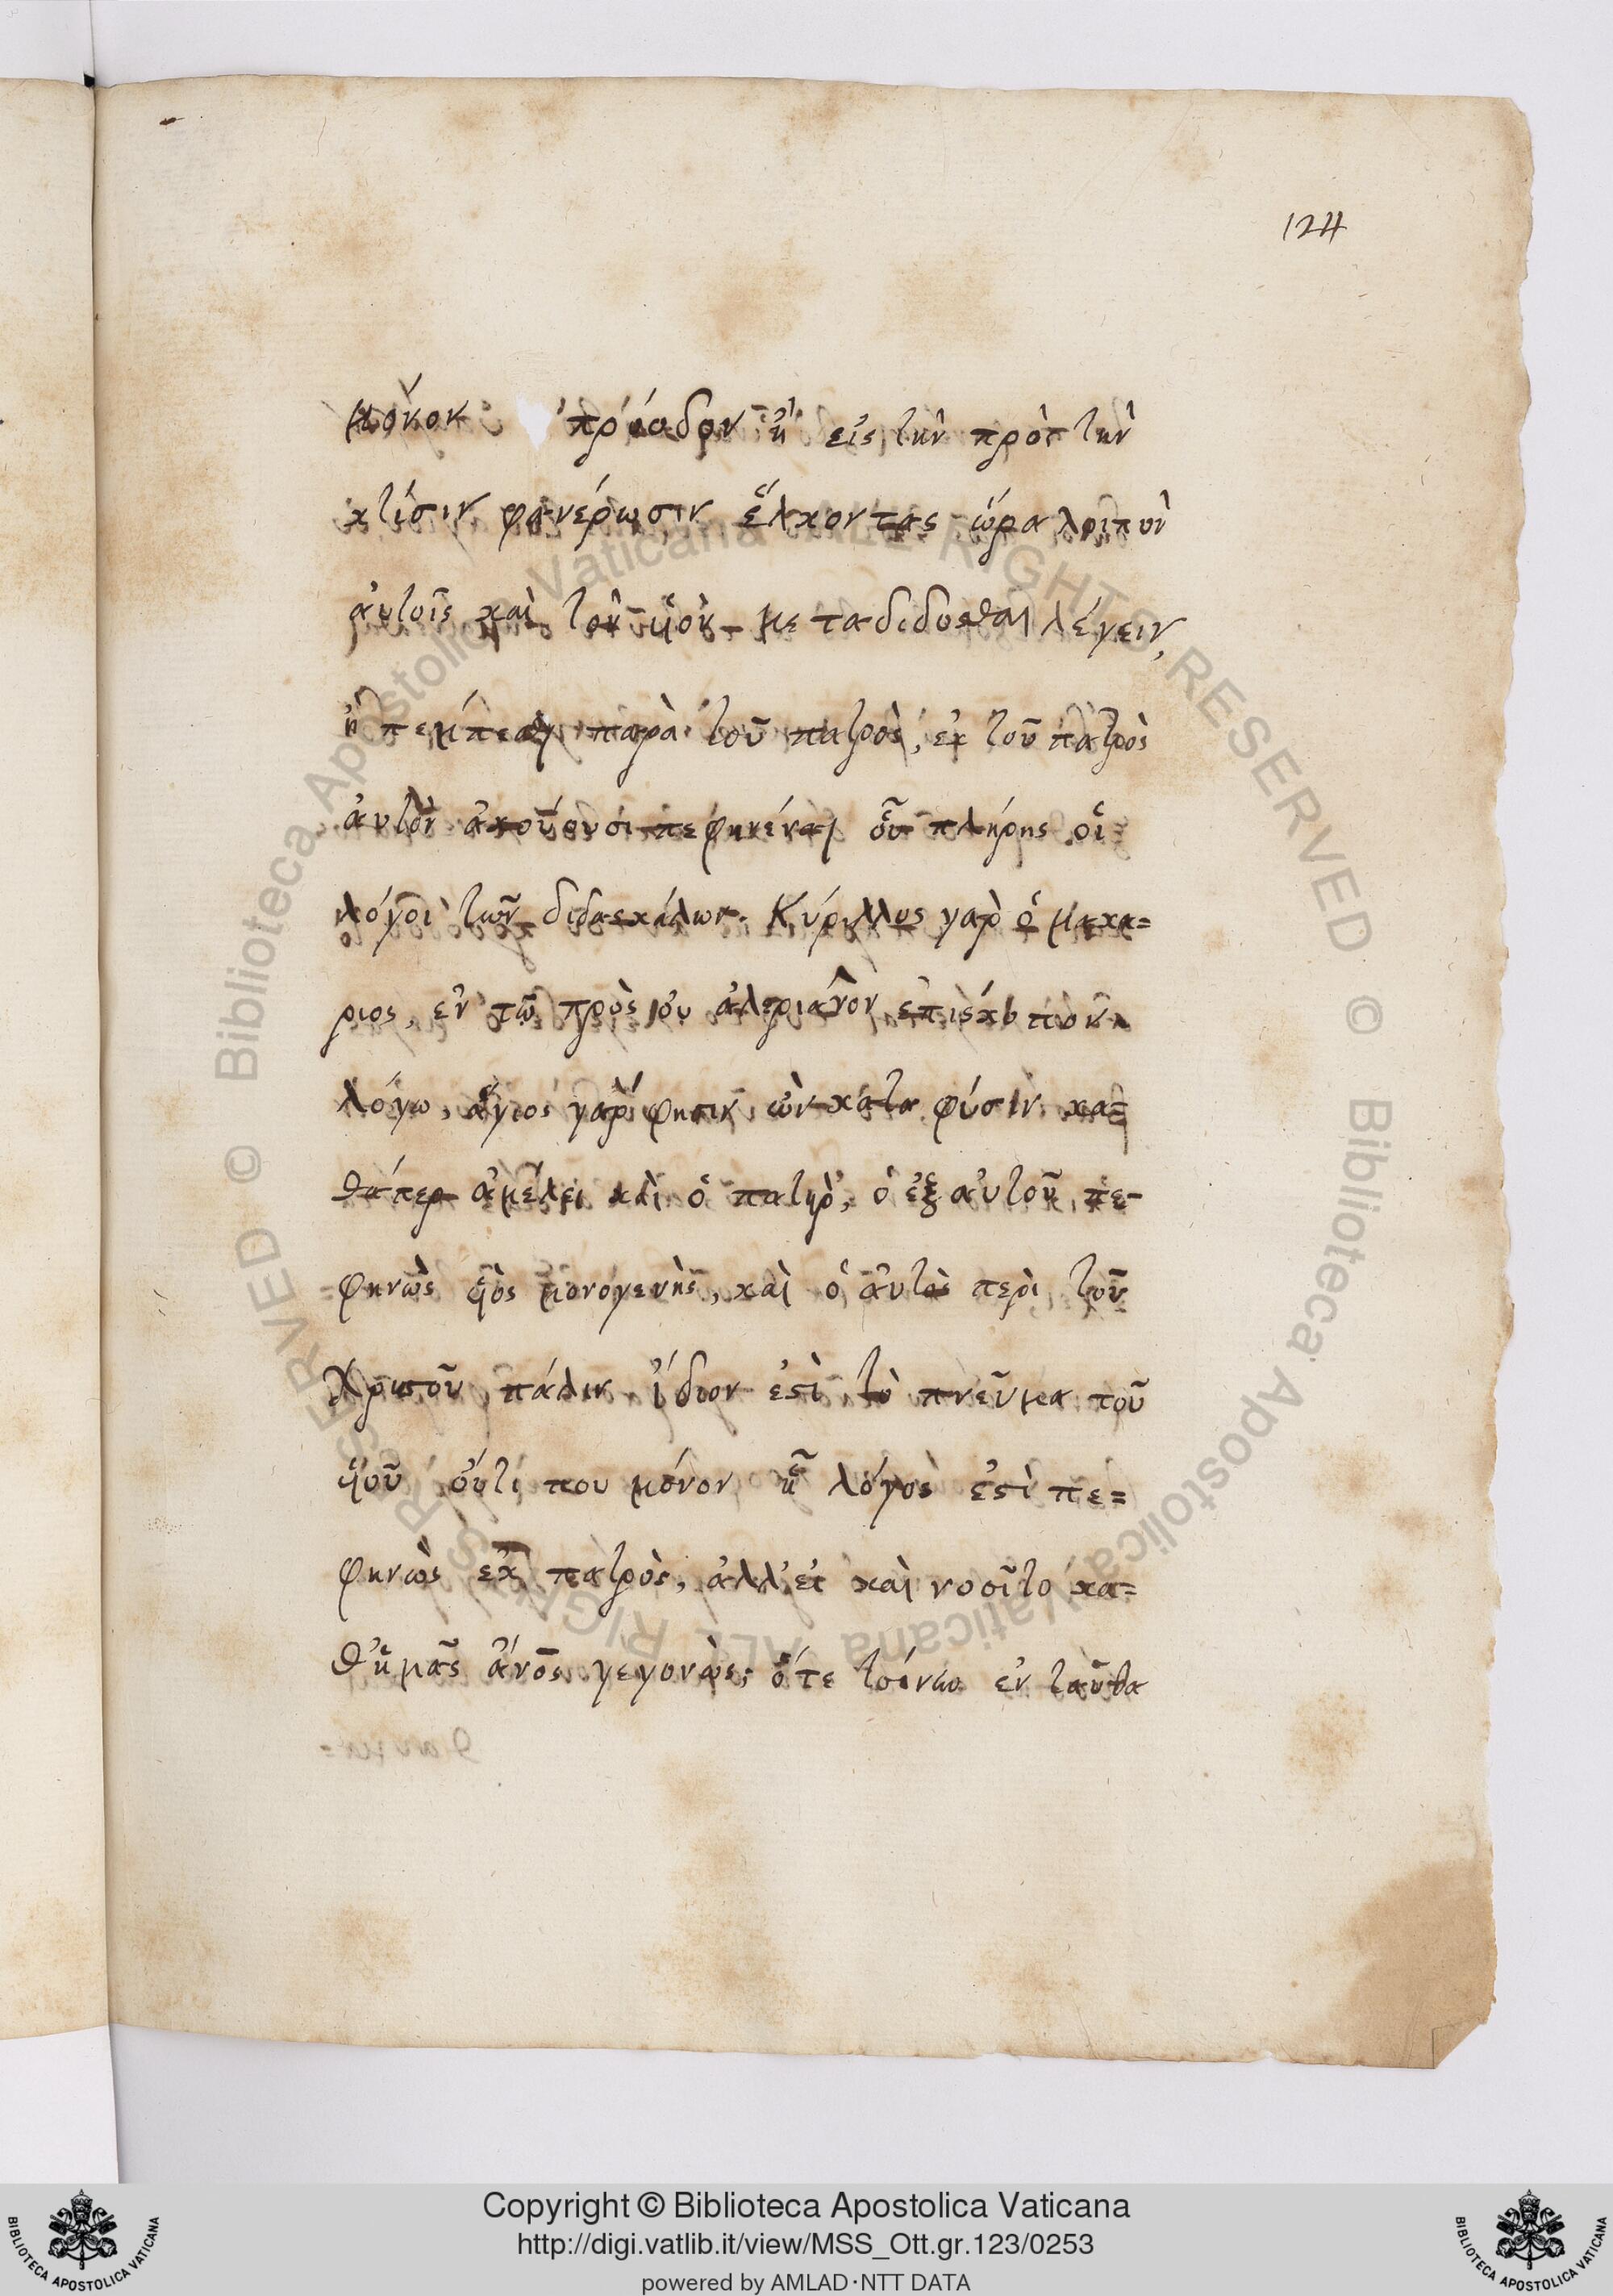 124
μόνον πρόοδον ἢ εἰς τὴν πρὸς τὴν
κτίσιν φανέρωσιν ἕλκοντας ὥρα λοιπὸν
αὐτοῖς καὶ τὸν ὑὸν μεταδίδοσθαι λέγειν,
ἢ πέμπεσθαι παρὰ τοῦ πατρὸς, ἐκ τοῦ πατρὸς
αὐτὸν ἀκούουσι πεφηνέναι οὗ πλήρης οἱ
λόγοι τῶν διδασκάλων. Κύριλλος γαρ ὁ μακα=
ριος, ἐν τῶ πρὸς ἀλεριανὸν ἐπίσκοπον
λόγω, ἅγιος γαρ φησιν ὢν κατα φύσιν κα=
θάπερ ἀμέλει καὶ ὁ πατὴρ, ὁ ἐξ αὐτοῦ πε-
φηνὼς ὑὸς μονογενὴς, καὶ ὁ αὐτὸς περὶ τοῦ
Χριστοῦ πάλιν ἴδιον ἐστὶ τὸ πνεῦμα τοῦ
ὑοῦ οὔτί που μόνον ἧ λόγος ἐστὶ πε=
φηνὼς ἐκ πατρὸς, ἀλλ' εἰ καὶ νοοῖτο κα=
θ' ἡμᾶς ἄνος γεγονὼς, ὅτε τοίνυν ἐν ταῦθα
Copyright © Biblioteca Apostolica Vaticana
http://digi.vatlib.it/view/MSS_Ott.gr.123/0253
powered by AMLAD·NTT DATA
BIBLIOTECA APOSTOLICA VATICANA
BIBLIOTECA APOSTOLICA VATICANA
© Biblioteca Apostolica Vaticana ALL RIGHTS RESERVED © Biblioteca Apostolica Vaticana ALL RIGHTS RESERVED